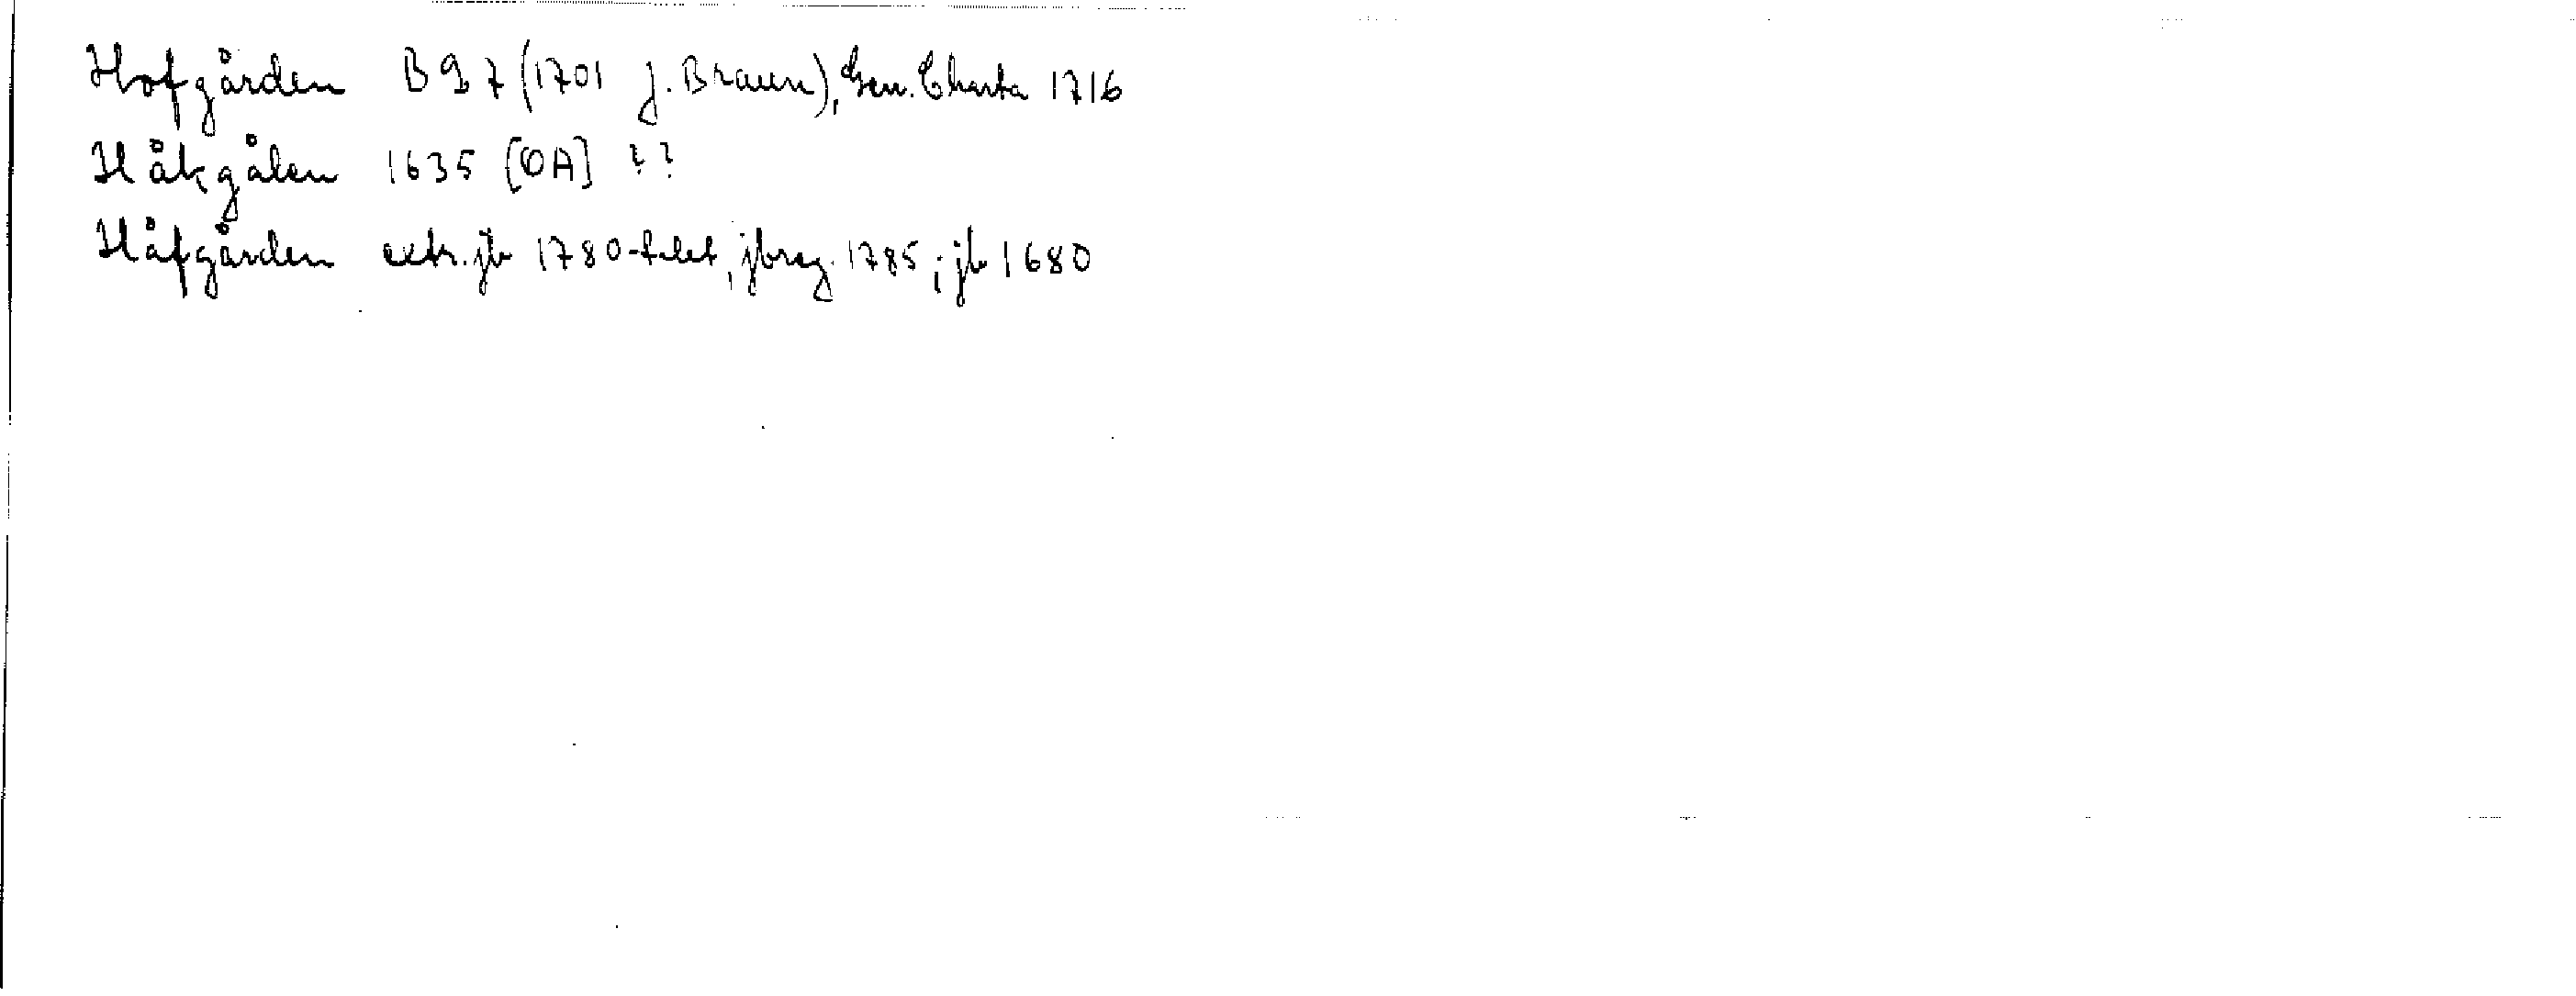 Hofgården B97 (1701 J. Braun), Gen. Charta 1716
Håkgålen 1635 [OA] ??
Håfgården extr. jb 1780-talet, jbreg. 1785; jb 1680